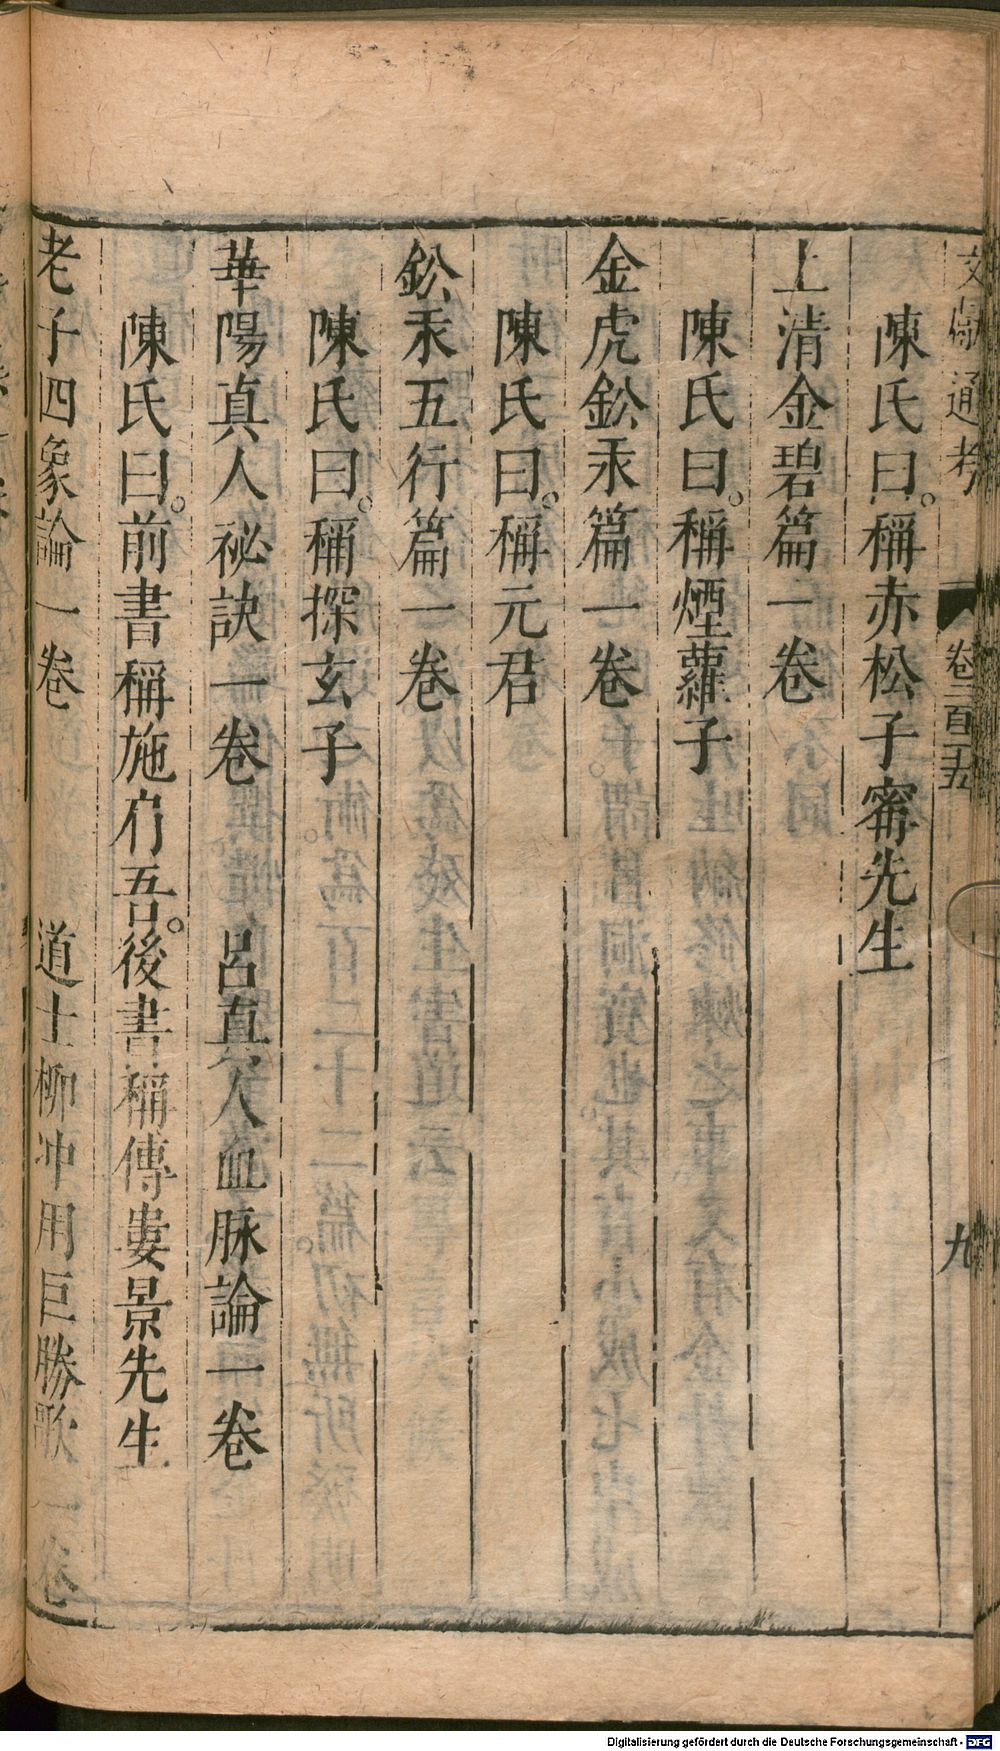 文獻通考 卷二百二十五 九
陳氏曰。稱赤松子甯先生
上清金碧篇一卷
陳氏曰。稱煙蘿子
金虎鈆汞篇一卷
陳氏曰。稱元君
鈆汞五行篇一卷
陳氏曰。稱探玄子
華陽真人祕訣一卷 呂真人血脉論一卷
陳氏曰。前書稱施肩吾。後書稱傅婁景先生
老子四象論一卷 道士柳冲用巨勝歌一卷
Digitalisierung gefördert durch die Deutsche Forschungsgemeinschaft - DFG